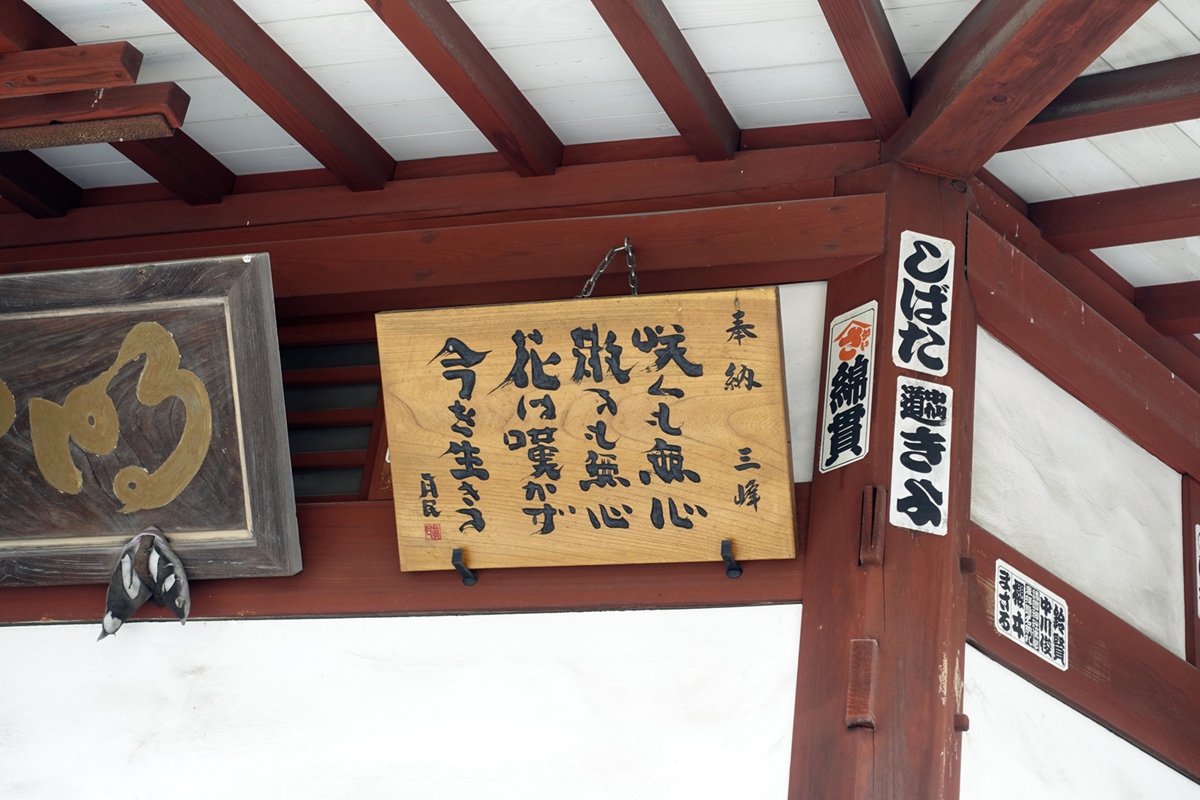 奉納 三峰
咲くも無心
散るも無心
花は嘆かず
今を生きる
しばた
綿貫
き
鈴賢
中川俊
櫻井
まさる